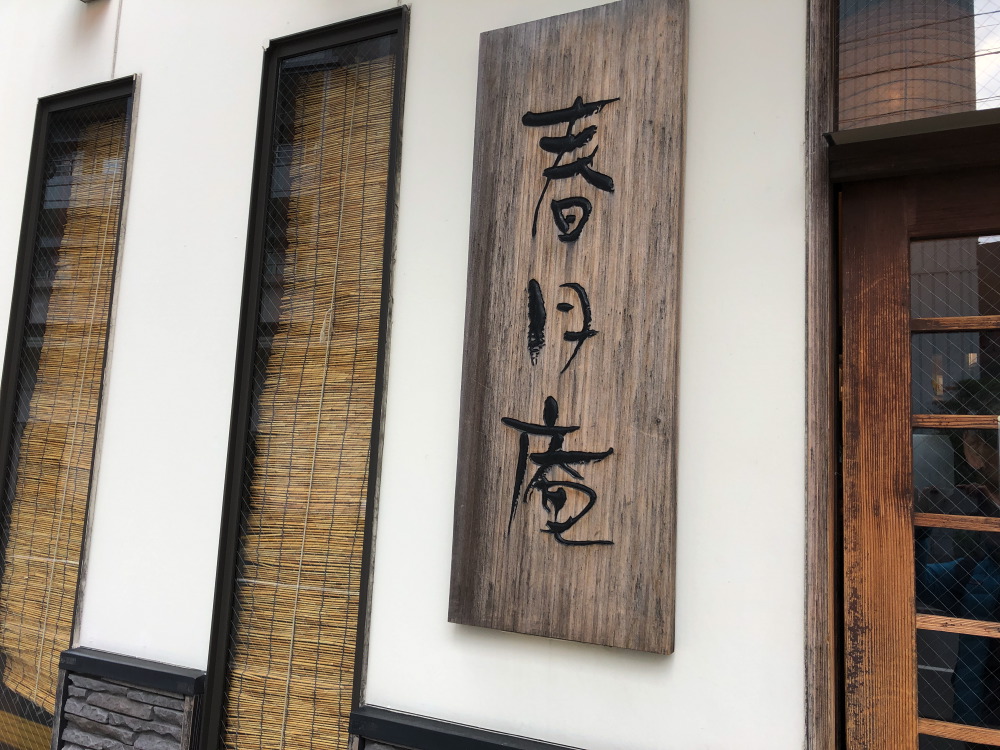 春月庵